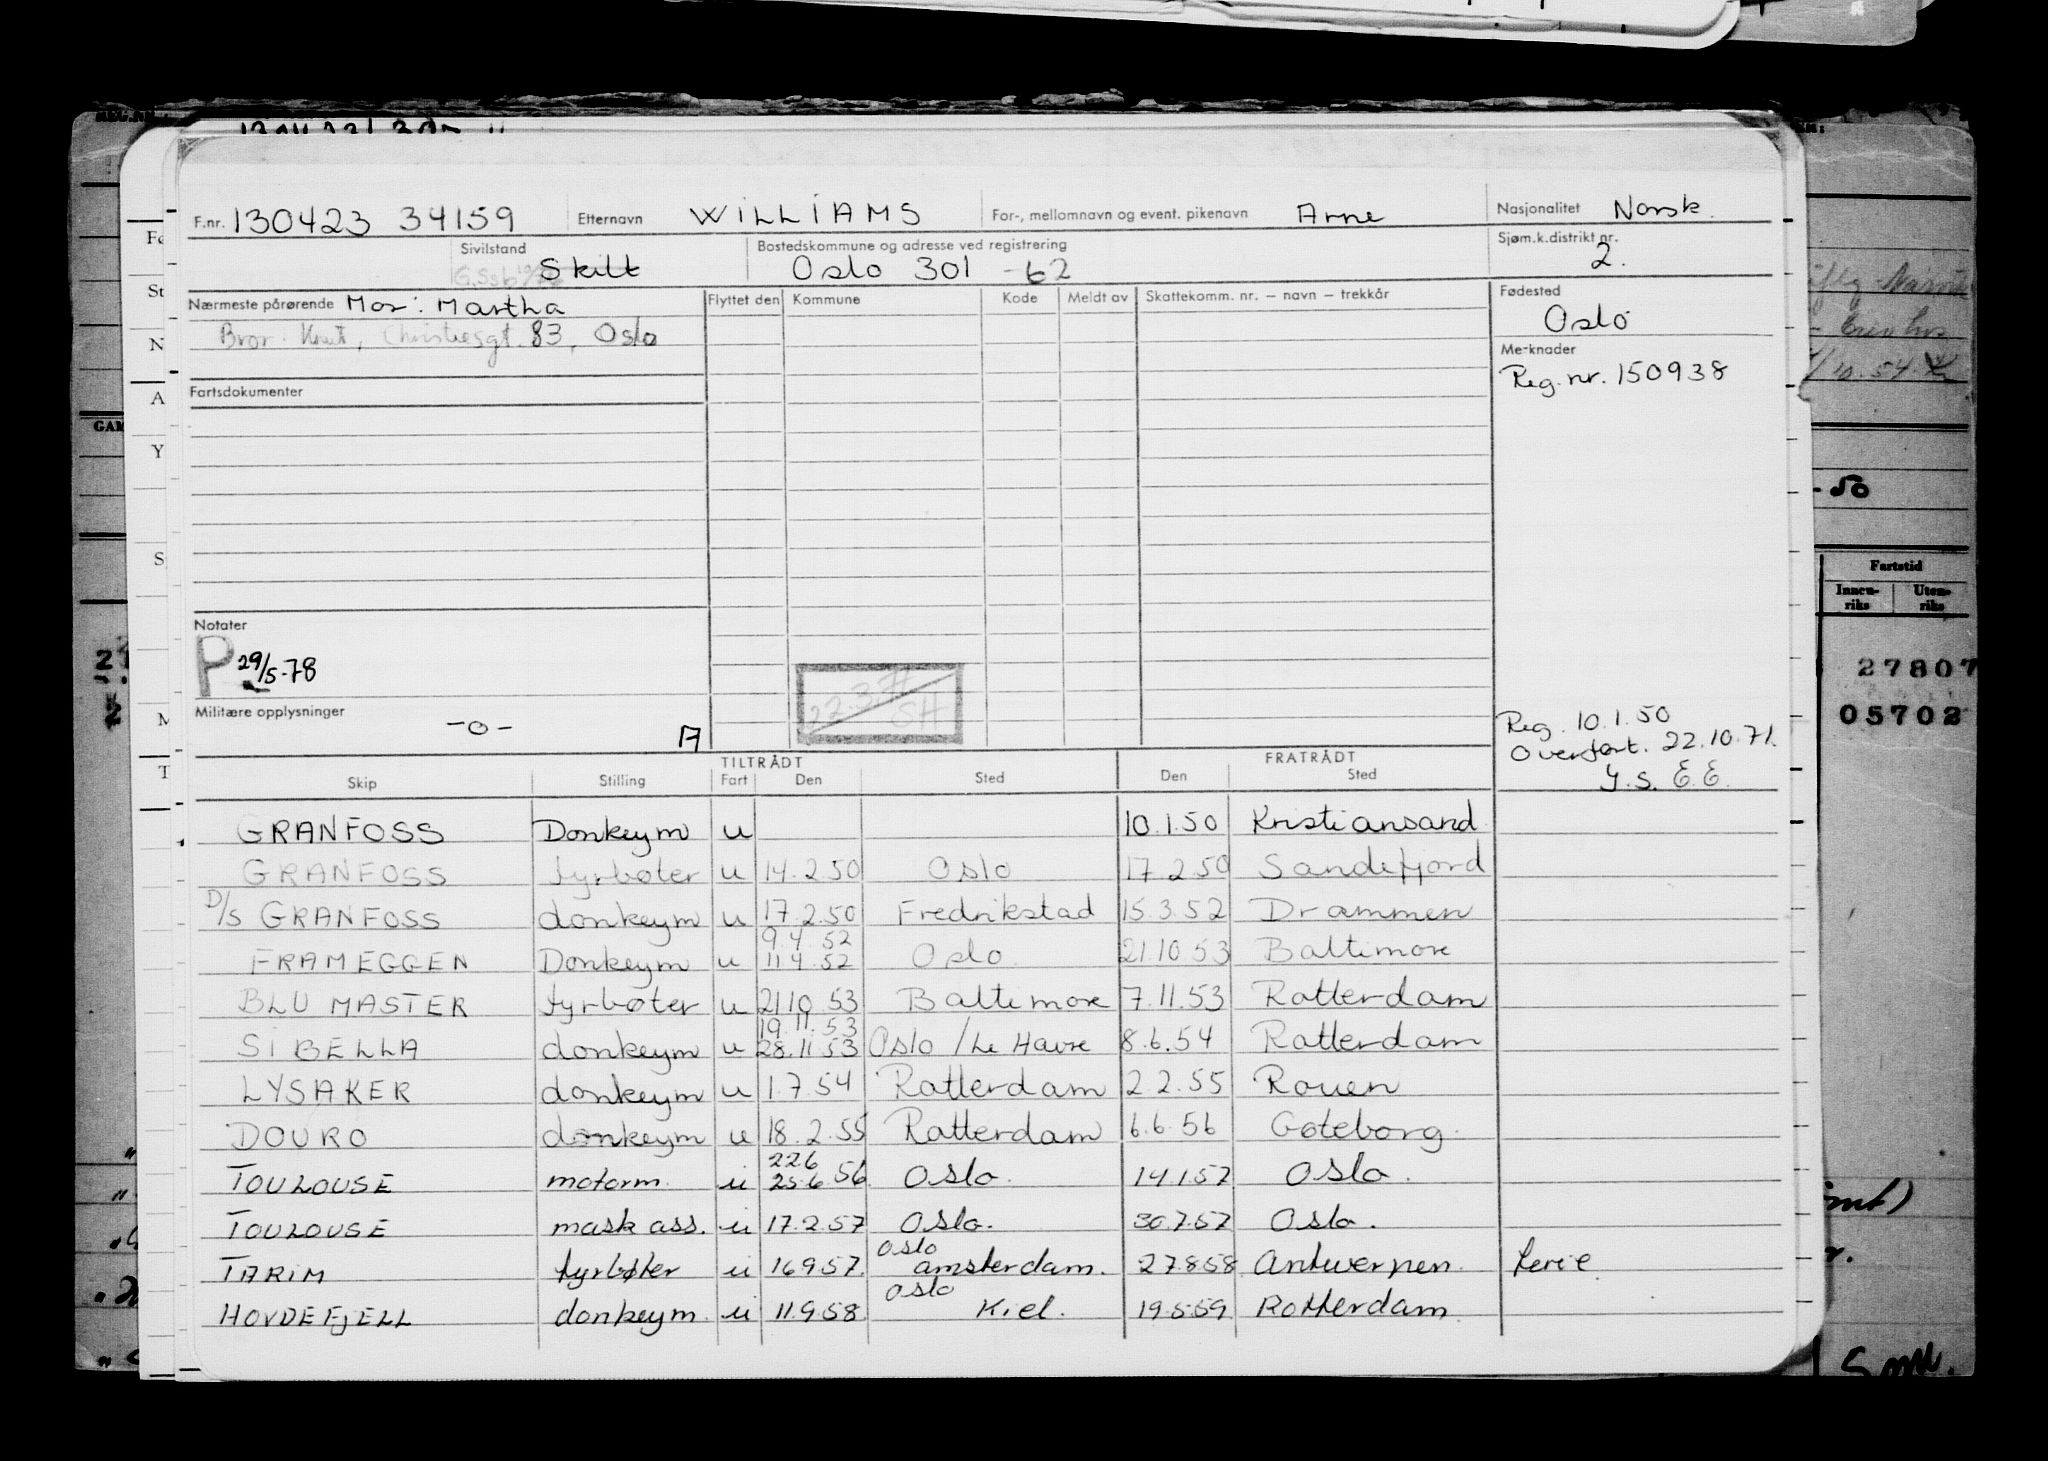 F.nr. 130423 34159 Etternavn WILLIAMS For-, mellomnavn og event. pikenavn Arne Nasjonalitet Norsk.
Sivilstand Skilt Bostedskommune og adresse ved registrering Oslo 301 -62 Sjøm.k.distrikt nr. 2.
Nærmeste pårørende Mor: Martha Flyttet den Kommune Kode Meldt av Skattekomm. nr. – navn – trekkår Fødested Oslo
Bror Knut, Christiesgt. 83, Oslo
Me-knader
Reg. nr. 150938
Fartsdokumenter
Notater
P 29/5-78
22.3.71 SH
Militære opplysninger -o- A
Reg. 10.1.50
Overført. 22.10.71.
Y.S. E.E.
TILTRÅDT FRATRÅDT
Skip Stilling Fart Den Sted Den Sted
GRANFOSS Donkeym u 10.1.50 Kristiansand
GRANFOSS fyrbøter u 14.2.50 Oslo 17.2.50 Sandefjord
D/S GRANFOSS donkeym u 17.2.50 Fredrikstad 15.3.52 Drammen
9.4.52
FRAMEGGEN Donkeym u 11.4.52 Oslo 21.10.53 Baltimore
BLU MASTER fyrbøter u 21.10.53 Baltimore 7.11.53 Rotterdam
19.11.53
SIBELLA donkeym u 28.11.53 Oslo / Le Havre 8.6.54 Rotterdam
LYSAKER donkeym u 1.7.54 Rotterdam 2.2.55 Rouen
DOURO donkeym u 18.2.55 Rotterdam 6.6.56 Gøteborg.
22.6
TOULOUSE motorm. u 25.6.56 Oslo. 14.1.57 Oslo.
TOULOUSE mask ass. u 17.2.57 Oslo. 30.7.57 Oslo.
Oslo
TARIM fyrbøter u 16.9.57. amsterdam. 27.8.58 Antwerpen. ferie
Oslo
HOVDEFJELL donkeym. u 11.9.58. Kiel. 19.5.59 Rotterdam.
GAM
-50
Fartstid
Innen-riks Uten-riks
27807
05702